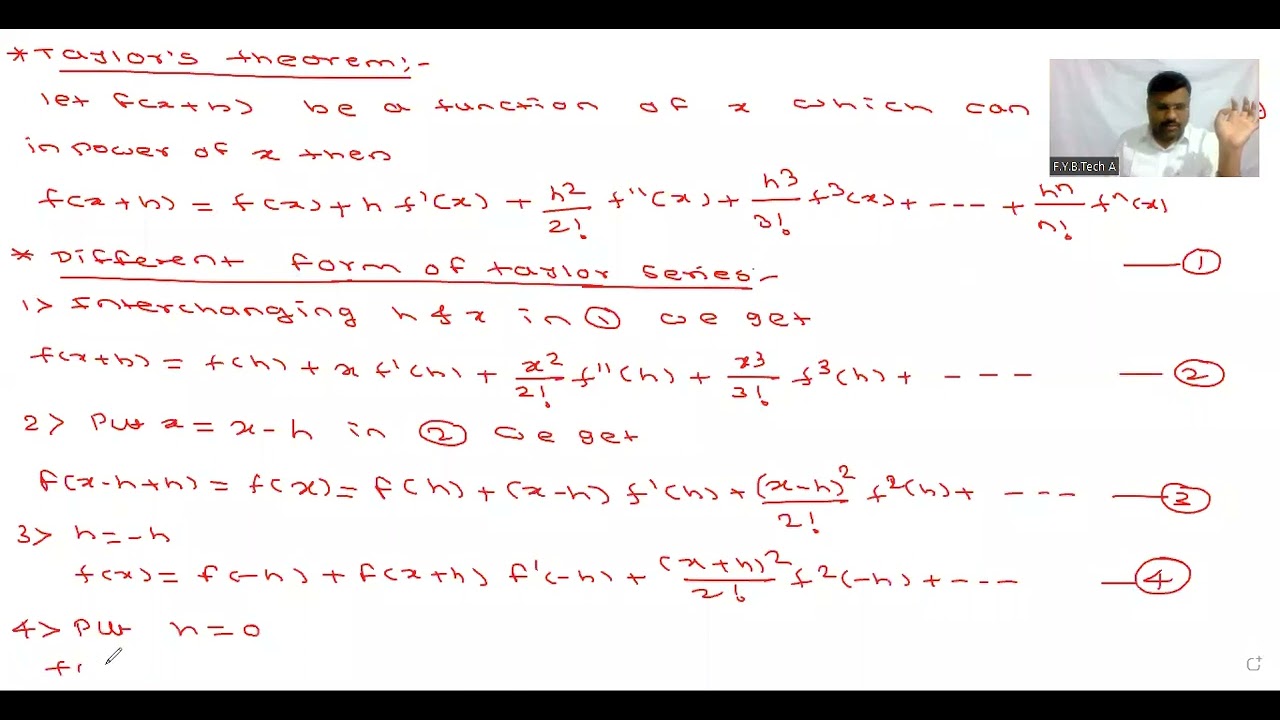 * Taylor's theorem:-
let f(x+h) be a function of x which can
in power of x then
F.Y.B.Tech A
f(x+h) = f(x) + h f'(x) + h²/2! f''(x) + h³/3! f³(x) + --- + hⁿ/n! fⁿ(x)
* Different form of taylor series:- —①
1> Interchanging h & x in ① we get
f(x+h) = f(h) + x f'(h) + x²/2! f''(h) + x³/3! f³(h) + --- —②
2> Put x = x-h in ② we get
f(x-h+h) = f(x) = f(h) + (x-h) f'(h) + (x-h)²/2! f²(h) + --- —③
3> h = -h
f(x) = f(-h) + f(x+h) f'(-h) + (x+h)²/2! f²(-h) + --- —④
4> Put h = 0
f(